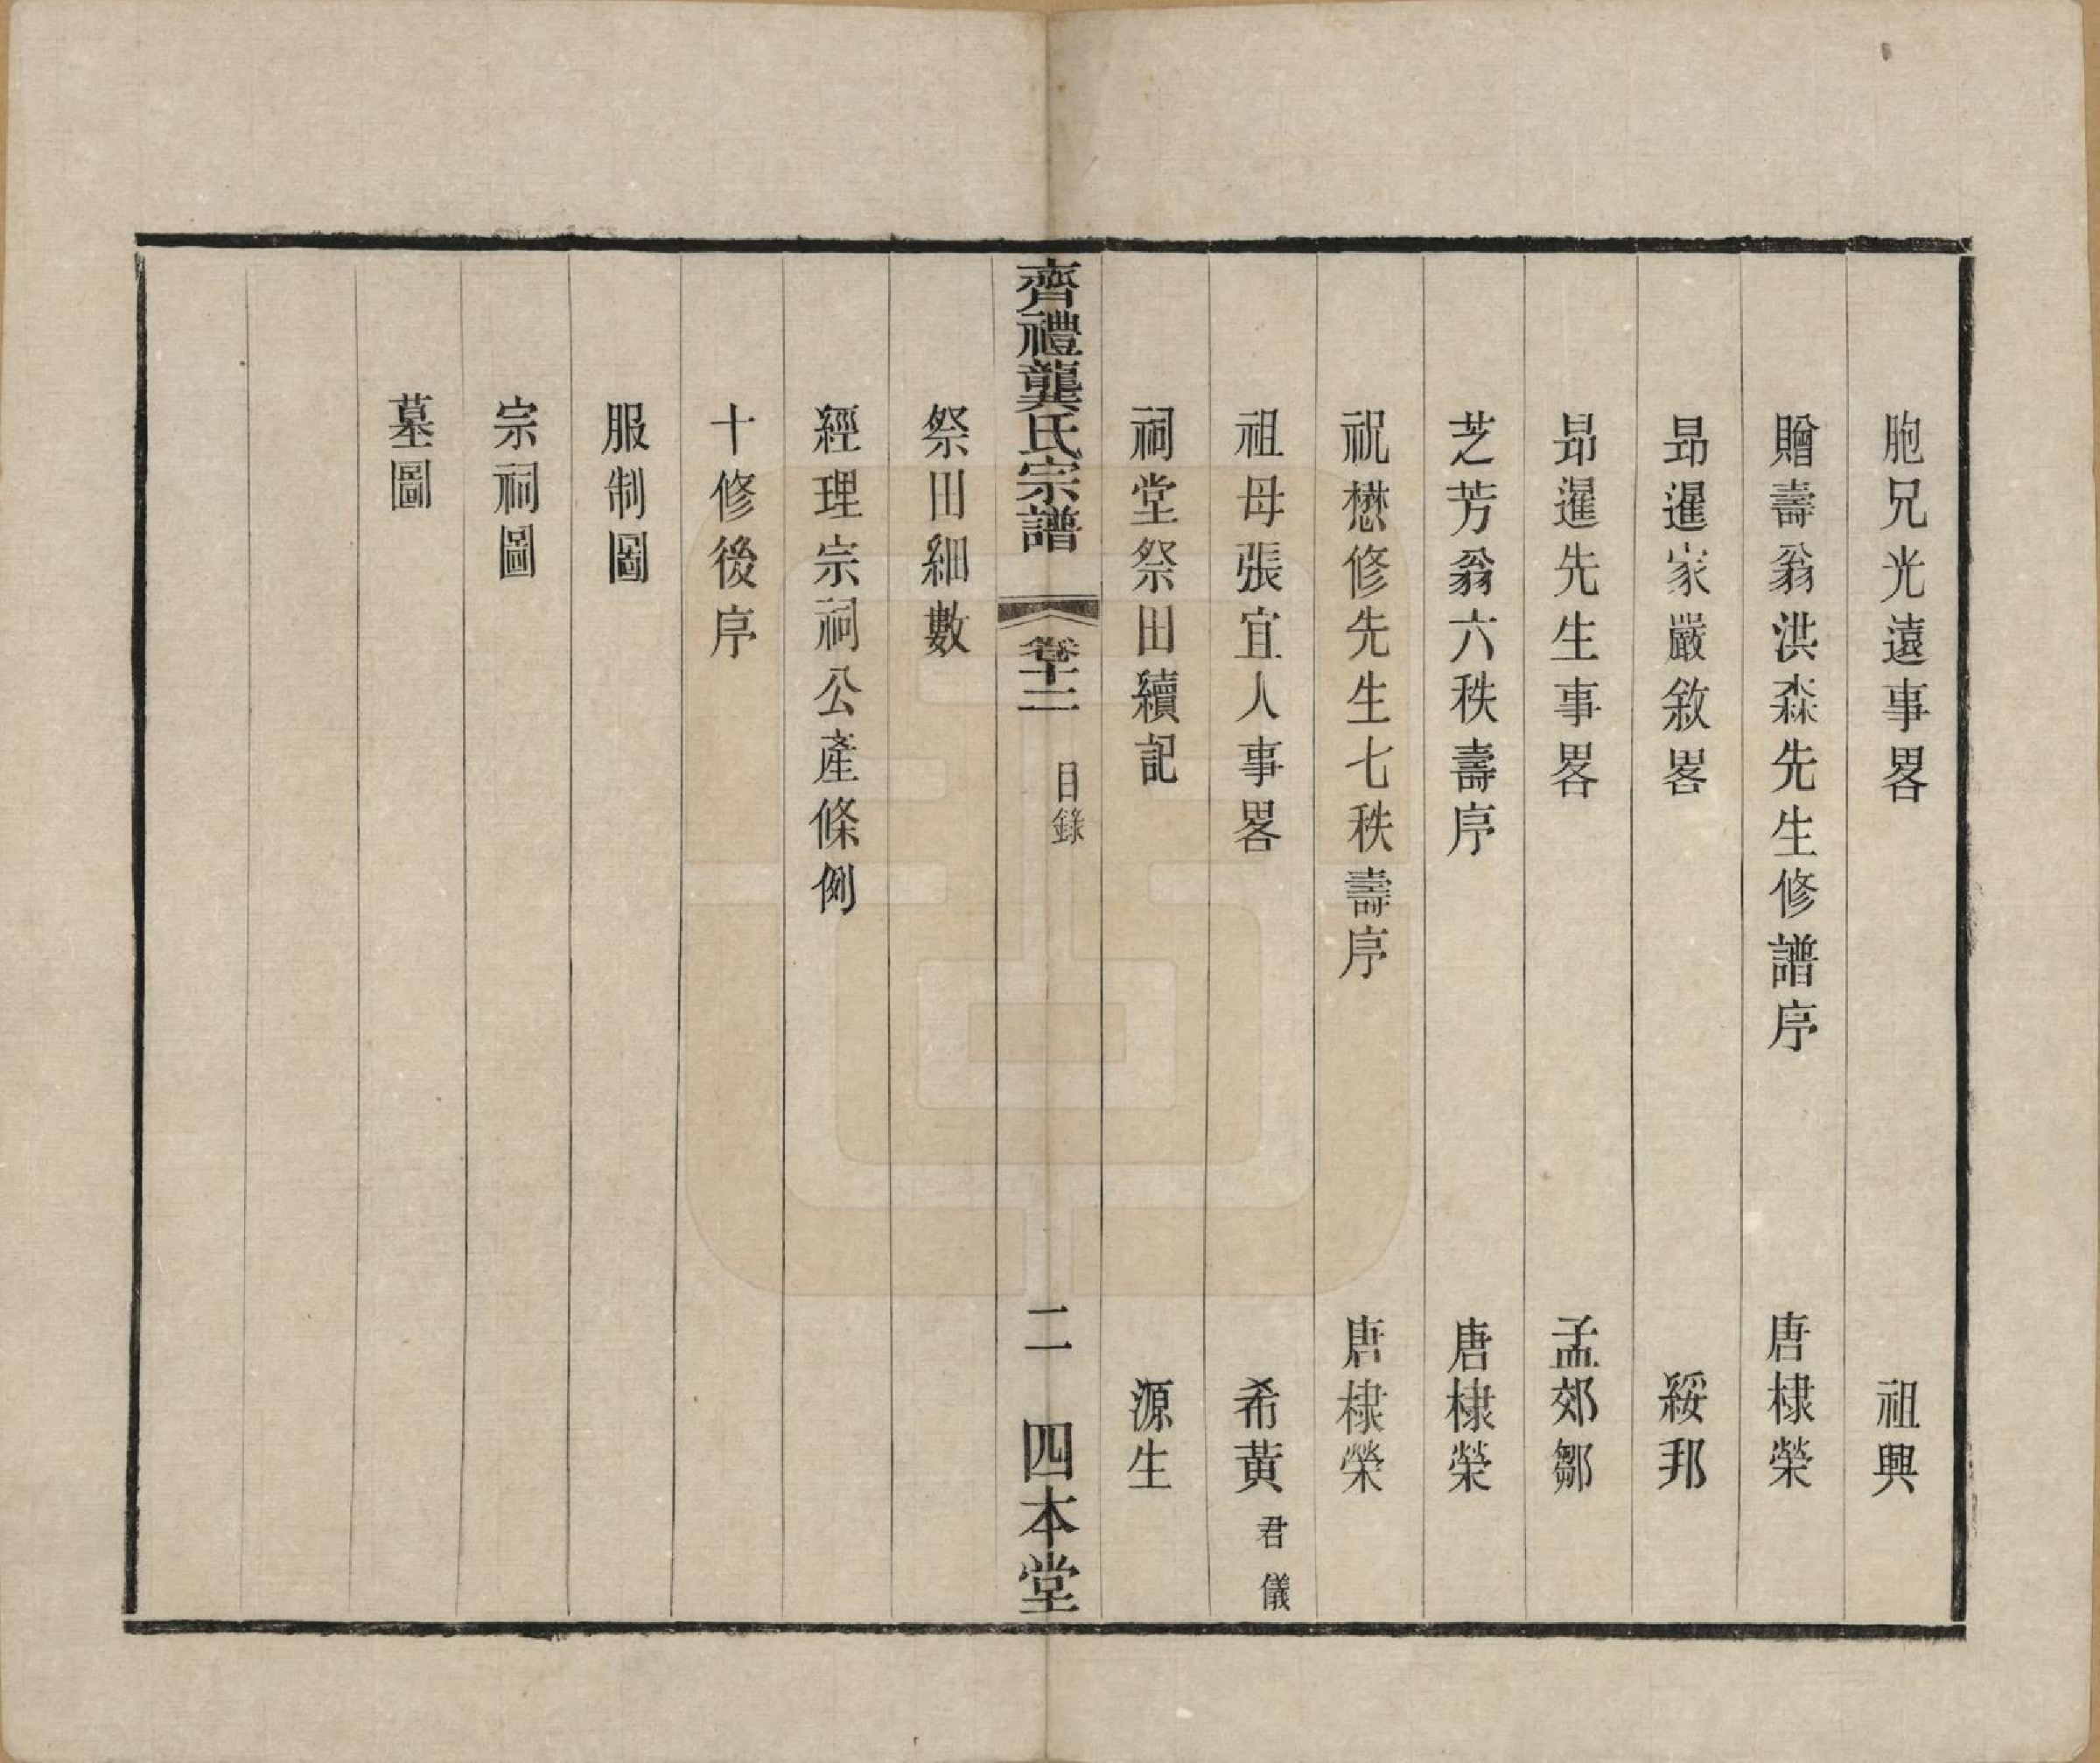 胞兄光遠事畧 祖興
贈壽翁洪森先生修譜序 唐棣榮
昻暹家嚴敘畧 綏邦
昻暹先生事畧 孟郊鄒
芝芳翁六秩壽序 唐棣榮
祝懋修先生七秩壽序 唐棣榮
祖母張宜人事畧 希黃 君儀
祠堂祭田續記 源生
齊禮龔氏宗譜 卷十二 目錄 二 四本堂
祭田細數
經理宗祠公產條例
十修後序
服制圖
宗祠圖
墓圖